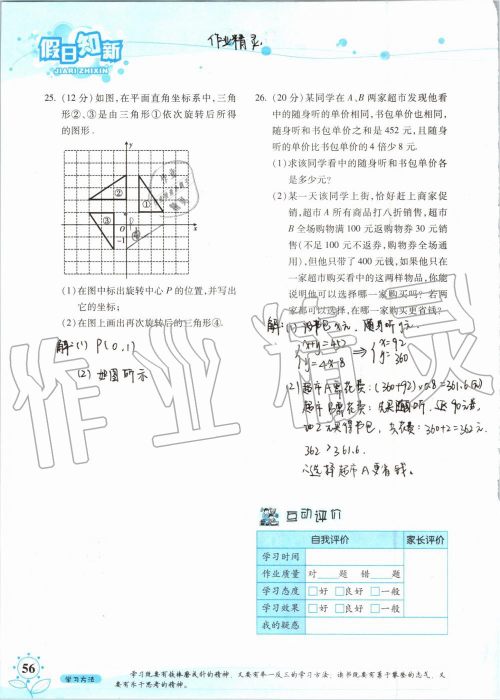 假日知新
JIARI ZHIXIN
作业精灵
25. (12分)如图,在平面直角坐标系中,三角
形②、③是由三角形①依次旋转后所得
的图形.
y
②
①
③
1
O
1
x
-1
④
(1)在图中标出旋转中心P的位置,并写出
它的坐标;
(2)在图上画出再次旋转后的三角形④.
解:(1) P(0,1)
(2) 如图所示
26. (20分)某同学在A、B两家超市发现他看
中的随身听的单价相同,书包单价也相同,
随身听和书包单价之和是452元,且随身
听的单价比书包单价的4倍少8元.
(1)求该同学看中的随身听和书包单价各
是多少元?
(2)某一天该同学上街,恰好赶上商家促
销,超市A所有商品打八折销售,超市
B全场购物满100元返购物券30元销
售(不足100元不返券,购物券全场通
用),但他只带了400元钱,如果他只在
一家超市购买看中的这两样物品,你能
说明他可以选择哪一家购买吗?若两
家都可以选择,在哪一家购买更省钱?
解:(1) 设书包x元,随身听y元.
{x+y=452
y=4x-8 ⇒ {x=92
y=360
(2) 超市A需花费:(360+92)×0.8=361.6(元)
超市B需花费:先买随身听,返90元券,
加2元买得书包,共花费:360+2=362元
362>361.6.
∴选择超市A更省钱.
作业精灵
互动评价
自我评价 家长评价
学习时间
作业质量 对____题 错____题
学习态度 □好 □良好 □一般
学习效果 □好 □良好 □一般
我的疑惑
56
学习方法
学习既要有铁棒磨成针的精神,又要有举一反三的学习方法,读书既要有勇于攀登的志气,又
要有水于思考的精神。